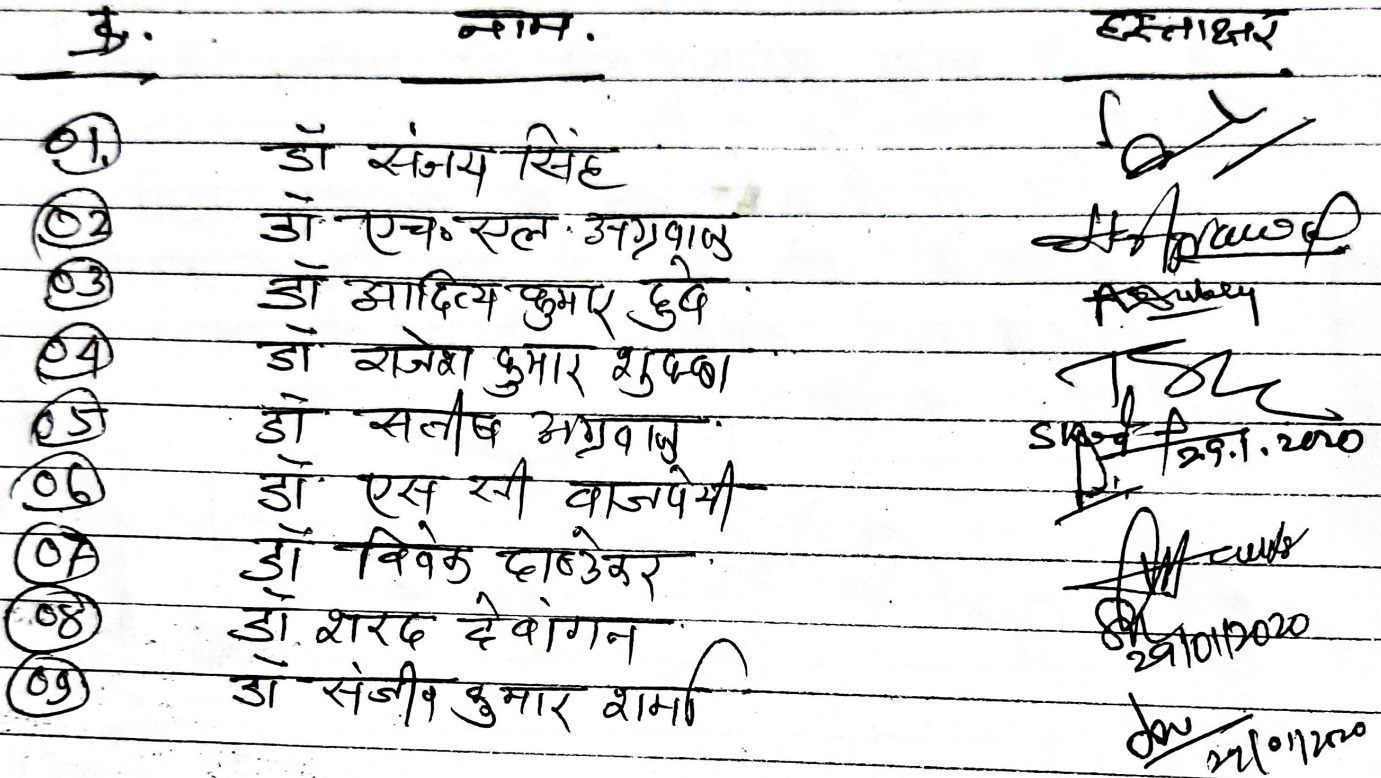 क्र. नाम. हस्ताक्षर
01. डॉ संजय सिंह
02 डॉ एच. एल. अग्रवाल H Agrawal
03 डॉ आदित्य कुमार दुबे AKDubey
04 डॉ राजेश कुमार शुक्ला
05 डॉ सतीष अग्रवाल 29.1.2020
06 डॉ एस सी वाजपेयी
07 डॉ विवेक दाण्डेकर
08 डॉ शरद देवांगन 29/01/2020
09 डॉ संजीव कुमार शर्मा 29/01/2020